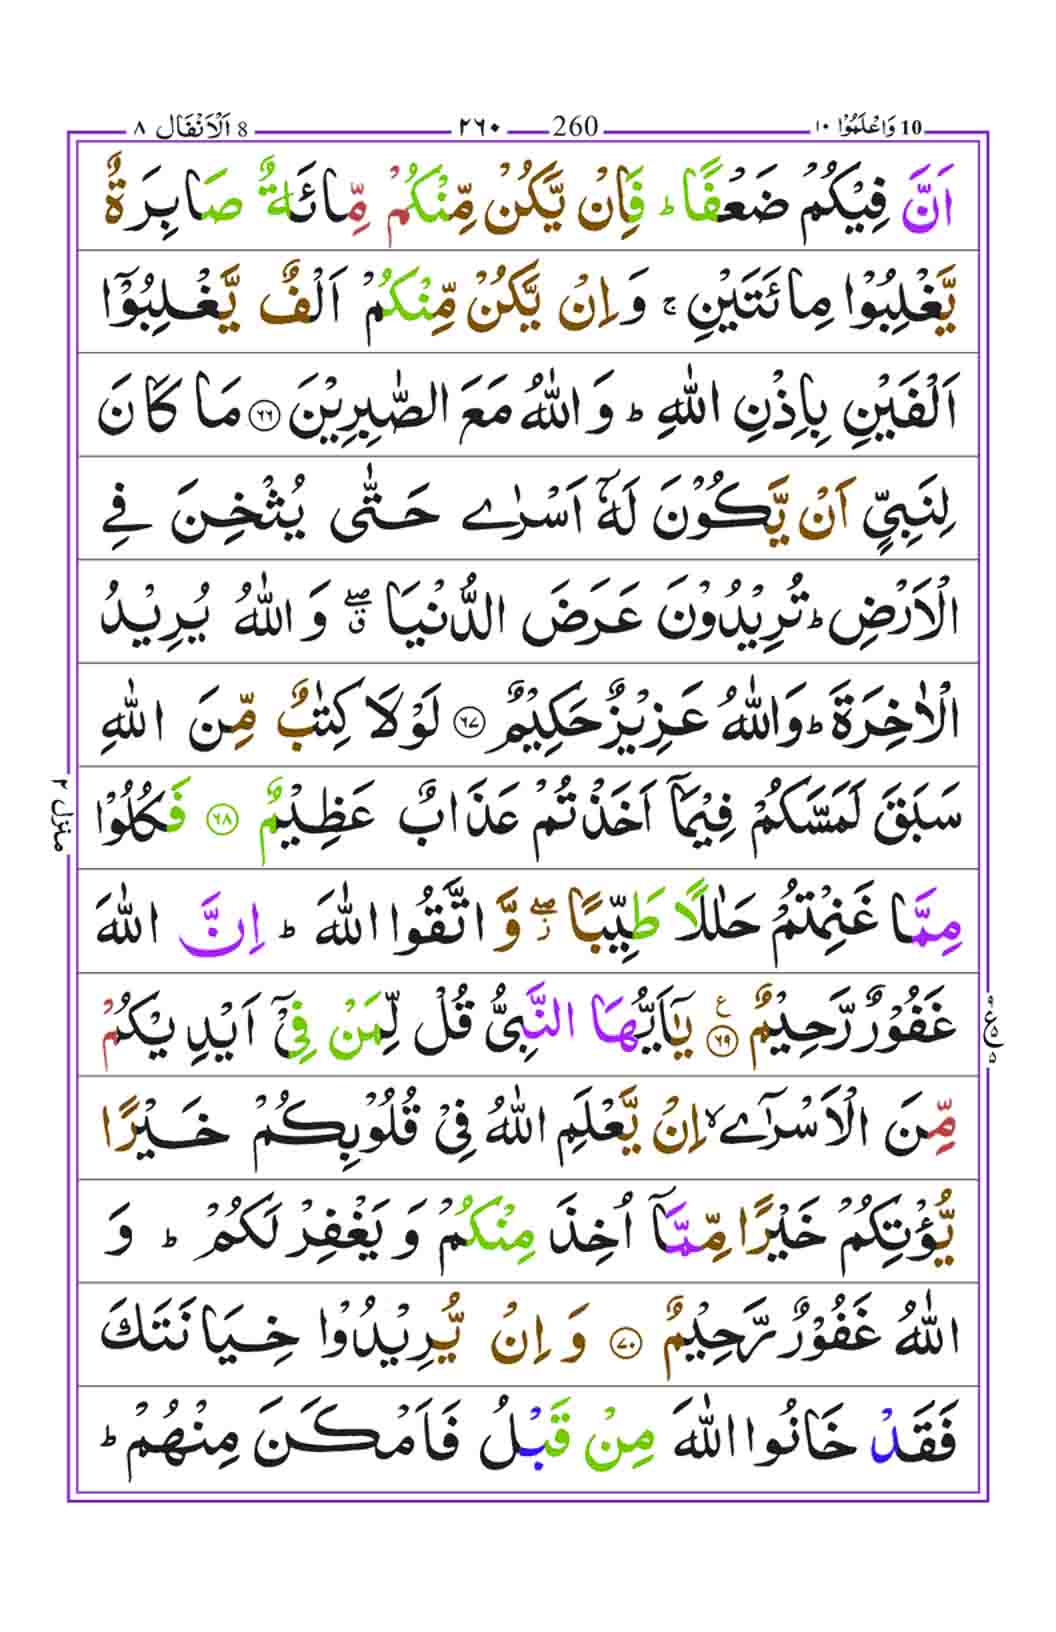 10 وَاعْلَمُوْۤا ١٠ 260 ٢٦٠ 8 اَلْاَنْفَال ٨
اَنَّ فِيْكُمْ ضَعْفًا ؕ فَاِنْ يَّكُنْ مِّنْكُمْ مِّائَةٌ صَابِرَةٌ
يَّغْلِبُوْا مِائَتَيْنِ ۚ وَ اِنْ يَّكُنْ مِّنْكُمْ اَلْفٌ يَّغْلِبُوْۤا
اَلْفَيْنِ بِاِذْنِ اللّٰهِ ؕ وَ اللّٰهُ مَعَ الصّٰبِرِيْنَ ﴿٦٦﴾ مَا كَانَ
لِنَبِيٍّ اَنْ يَّكُوْنَ لَهٗۤ اَسْرٰى حَتّٰى يُثْخِنَ فِي
الْاَرْضِ ؕ تُرِيْدُوْنَ عَرَضَ الدُّنْيَا ۖۗ وَ اللّٰهُ يُرِيْدُ
الْاٰخِرَةَ ؕ وَاللّٰهُ عَزِيْزٌ حَكِيْمٌ ﴿٦٧﴾ لَوْلَا كِتٰبٌ مِّنَ اللّٰهِ
سَبَقَ لَمَسَّكُمْ فِيْمَاۤ اَخَذْتُمْ عَذَابٌ عَظِيْمٌ ﴿٦٨﴾ فَكُلُوْا
مِمَّا غَنِمْتُمْ حَلٰلًا طَيِّبًا ۖؗ وَّ اتَّقُوا اللّٰهَ ؕ اِنَّ اللّٰهَ
غَفُوْرٌ رَّحِيْمٌ ﴿٦٩﴾ ع يٰۤاَيُّهَا النَّبِيُّ قُلْ لِّمَنْ فِيْۤ اَيْدِيْكُمْ
مِّنَ الْاَسْرٰۤى ۙ اِنْ يَّعْلَمِ اللّٰهُ فِيْ قُلُوْبِكُمْ خَيْرًا
يُّؤْتِكُمْ خَيْرًا مِّمَّاۤ اُخِذَ مِنْكُمْ وَ يَغْفِرْ لَكُمْ ؕ وَ
اللّٰهُ غَفُوْرٌ رَّحِيْمٌ ﴿٧٠﴾ وَ اِنْ يُّرِيْدُوْا خِيَانَتَكَ
فَقَدْ خَانُوا اللّٰهَ مِنْ قَبْلُ فَاَمْكَنَ مِنْهُمْ ؕ
منزل ٢